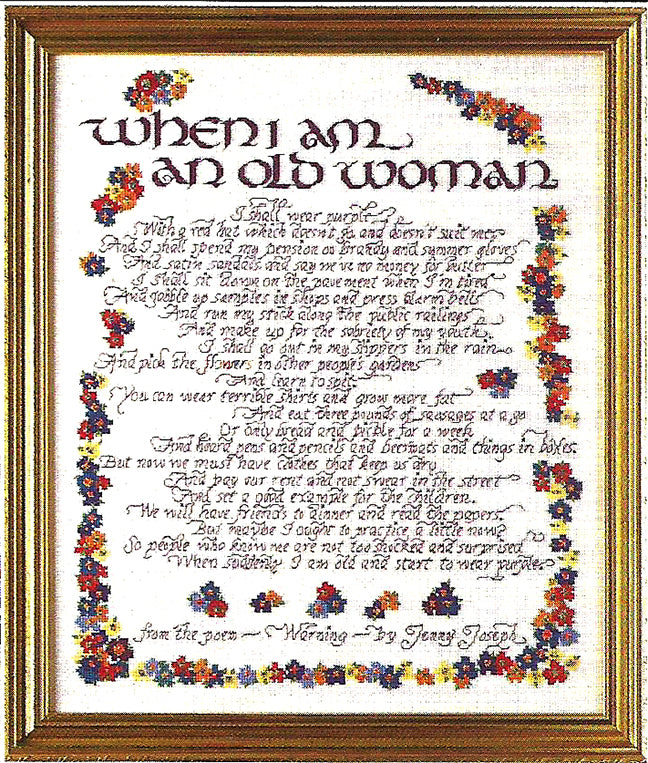 WHEN I AM
AN OLD WOMAN
I shall wear purple
With a red hat which doesn't go and doesn't suit me,
And I shall spend my pension on brandy and summer gloves
And satin sandals and say we've no money for butter
I shall sit down on the pavement when I'm tired
And gobble up samples in shops and press alarm bells
And run my stick along the public railings
And make up for the sobriety of my youth.
I shall go out in my slippers in the rain
And pick the flowers in other people's gardens
And learn to spit.
You can wear terrible shirts and grow more fat
And eat three pounds of sausages at a go
Or only bread and pickle for a week
And hoard pens and pencils and beermats and things in boxes.
But now we must have clothes that keep us dry
And pay our rent and not swear in the street
And set a good example for the children.
We will have friends to dinner and read the papers.
But maybe I ought to practice a little now?
So people who know me are not too shocked and surprised
When suddenly I am old and start to wear purple.
from the poem — Warning — by Jenny Joseph